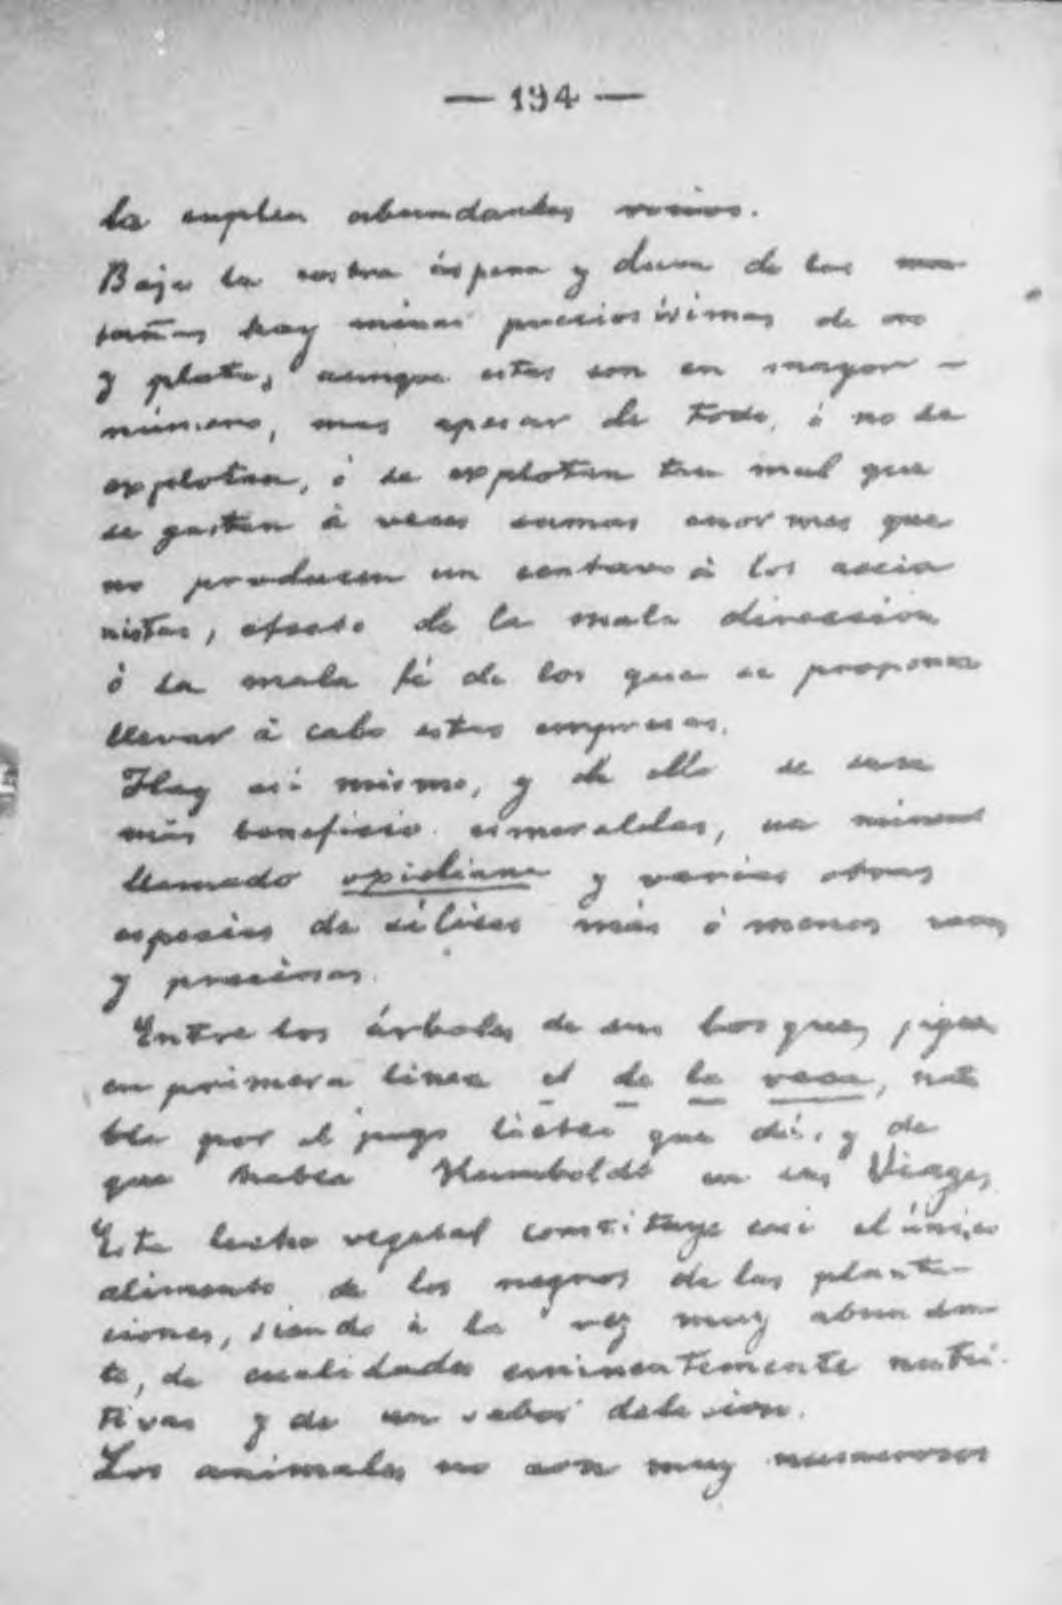 — 194 —
la suplen abundantes rocíos.
Bajo la costra áspera y dura de las mon
tañas hay minas preciosísimas de oro
y plata, aunque estas son en mayor –
número, mas apesar de todo, ó no se
explotan, ó se explotan tan mal que
se gastan á veces sumas enormes que
no producen un centavo á los accio
nistas, efecto de la mala dirección
ó la mala fé de los que se proponen
llevar á cabo estas empresas.
Hay así mismo, y de ello se saca
más beneficio esmeraldas, un mineral
llamado y varias otras
especies de sílices más ó menos raras
y preciosas.
Entre los árboles de sus bosques, figura
en primera línea el de la vaca, nota
ble por el jugo lácteo que dá, y de
que habla Humboldt en sus Viages,
Esta leche vegetal constituye casi el único
alimento de los negros de las planta–
ciones, siendo á la vez muy abundan
te, de cualidades eminentemente nutri-
tivas y de un sabor delicioso.
Los animales no son muy numerosos